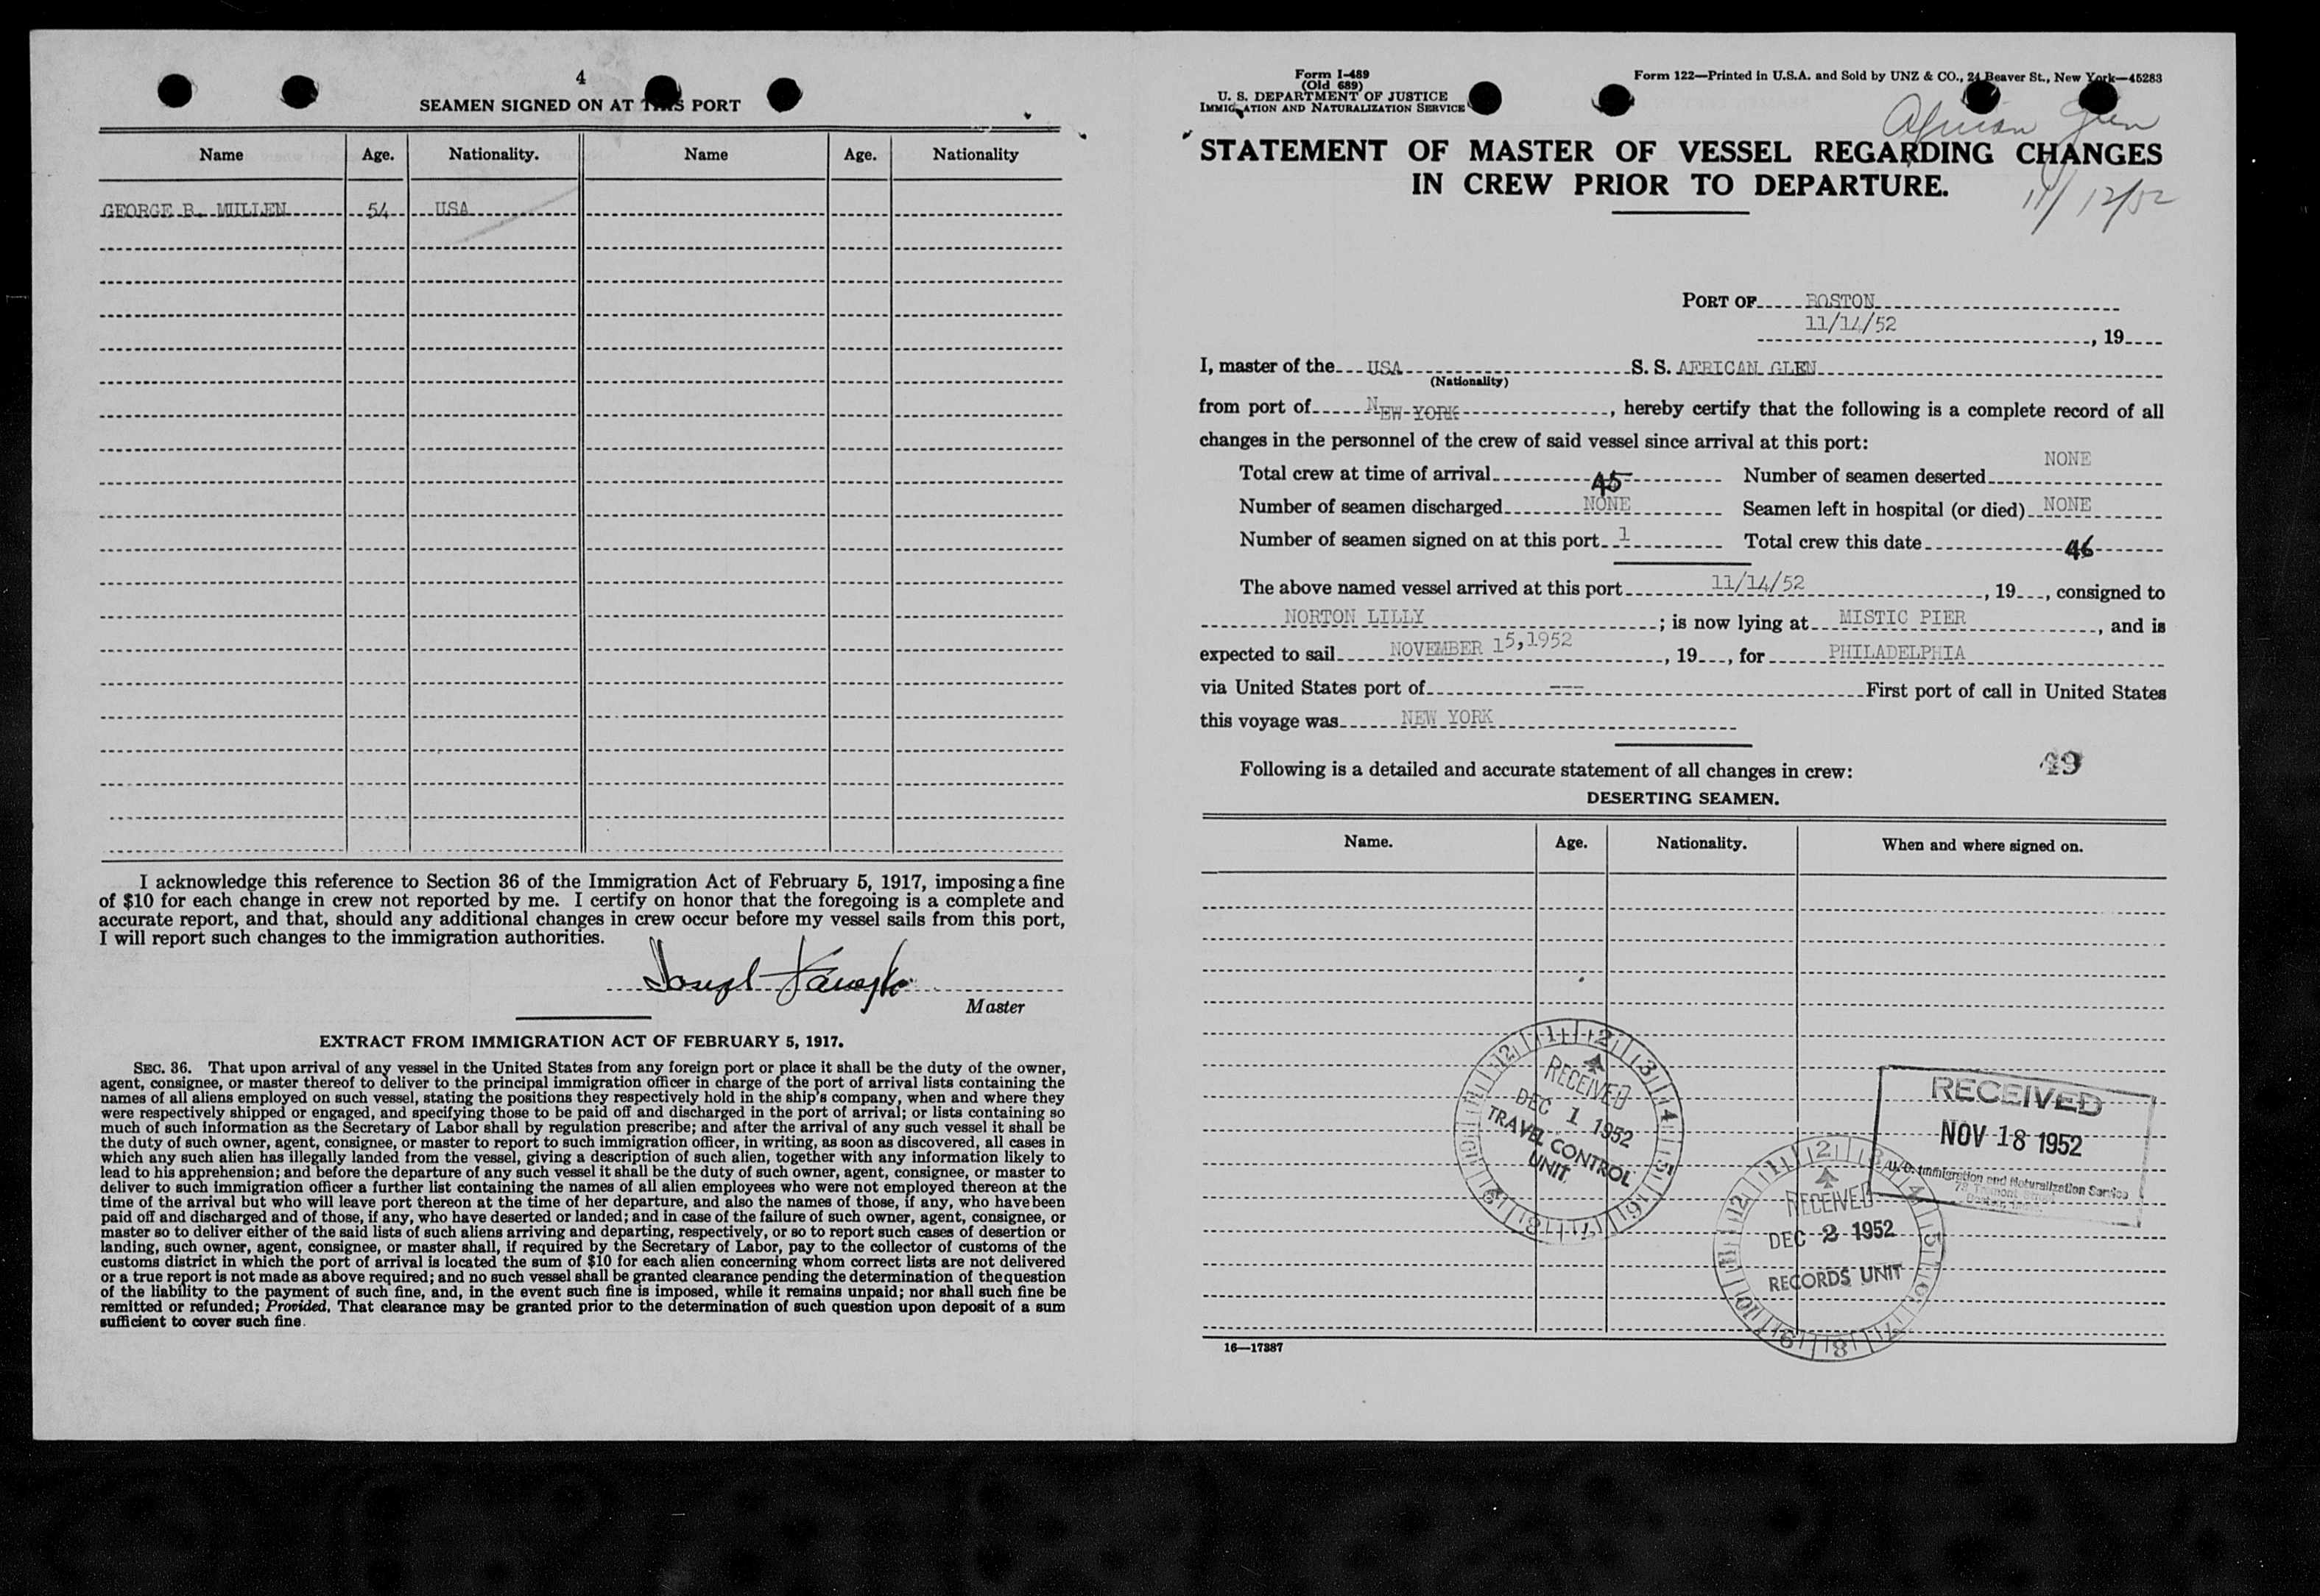 4
SEAMEN SIGNED ON AT THIS PORT
Name Age. Nationality. Name Age. Nationality
GEORGE B. MULLEN 54 USA
I acknowledge this reference to Section 36 of the Immigration Act of February 5, 1917, imposing a fine
of $10 for each change in crew not reported by me. I certify on honor that the foregoing is a complete and
accurate report, and that, should any additional changes in crew occur before my vessel sails from this port,
I will report such changes to the immigration authorities.
Master
EXTRACT FROM IMMIGRATION ACT OF FEBRUARY 5, 1917.
SEC. 36. That upon arrival of any vessel in the United States from any foreign port or place it shall be the duty of the owner,
agent, consignee, or master thereof to deliver to the principal immigration officer in charge of the port of arrival lists containing the
names of all aliens employed on such vessel, stating the positions they respectively hold in the ship's company, when and where they
were respectively shipped or engaged, and specifying those to be paid off and discharged in the port of arrival; or lists containing so
much of such information as the Secretary of Labor shall by regulation prescribe; and after the arrival of any such vessel it shall be
the duty of such owner, agent, consignee, or master to report to such immigration officer, in writing, as soon as discovered, all cases in
which any such alien has illegally landed from the vessel, giving a description of such alien, together with any information likely to
lead to his apprehension; and before the departure of any such vessel it shall be the duty of such owner, agent, consignee, or master to
deliver to such immigration officer a further list containing the names of all alien employees who were not employed thereon at the
time of the arrival but who will leave port thereon at the time of her departure, and also the names of those, if any, who have been
paid off and discharged and of those, if any, who have deserted or landed; and in case of the failure of such owner, agent, consignee, or
master so to deliver either of the said lists of such aliens arriving and departing, respectively, or so to report such cases of desertion or
landing, such owner, agent, consignee, or master shall, if required by the Secretary of Labor, pay to the collector of customs of the
customs district in which the port of arrival is located the sum of $10 for each alien concerning whom correct lists are not delivered
or a true report is not made as above required; and no such vessel shall be granted clearance pending the determination of the question
of the liability to the payment of such fine, and, in the event such fine is imposed, while it remains unpaid; nor shall such fine be
remitted or refunded; Provided, That clearance may be granted prior to the determination of such question upon deposit of a sum
sufficient to cover such fine.
Form I-489
(Old 689)
U. S. DEPARTMENT OF JUSTICE
IMMIGRATION AND NATURALIZATION SERVICE
Form 122—Printed in U.S.A. and Sold by UNZ & CO., 24 Beaver St., New York—45283
African Glen
STATEMENT OF MASTER OF VESSEL REGARDING CHANGES
IN CREW PRIOR TO DEPARTURE.
11/12/52
PORT OF BOSTON
11/14/52 , 19
I, master of the USA S. S. AFRICAN GLEN
(Nationality)
from port of NEW YORK , hereby certify that the following is a complete record of all
changes in the personnel of the crew of said vessel since arrival at this port:
Total crew at time of arrival 45 Number of seamen deserted NONE
Number of seamen discharged NONE Seamen left in hospital (or died) NONE
Number of seamen signed on at this port 1 Total crew this date 46
The above named vessel arrived at this port 11/14/52 , 19 , consigned to
NORTON LILLY ; is now lying at MISTIC PIER , and is
expected to sail NOVEMBER 15,1952 , 19 , for PHILADELPHIA
via United States port of --- First port of call in United States
this voyage was NEW YORK
49
Following is a detailed and accurate statement of all changes in crew:
DESERTING SEAMEN.
Name. Age. Nationality. When and where signed on.
RECEIVED
DEC 1 1952
TRAVEL CONTROL
UNIT
RECEIVED
NOV 18 1952
U. S. Immigration and Naturalization Service
RECEIVED
DEC 2 1952
RECORDS UNIT
16—17387